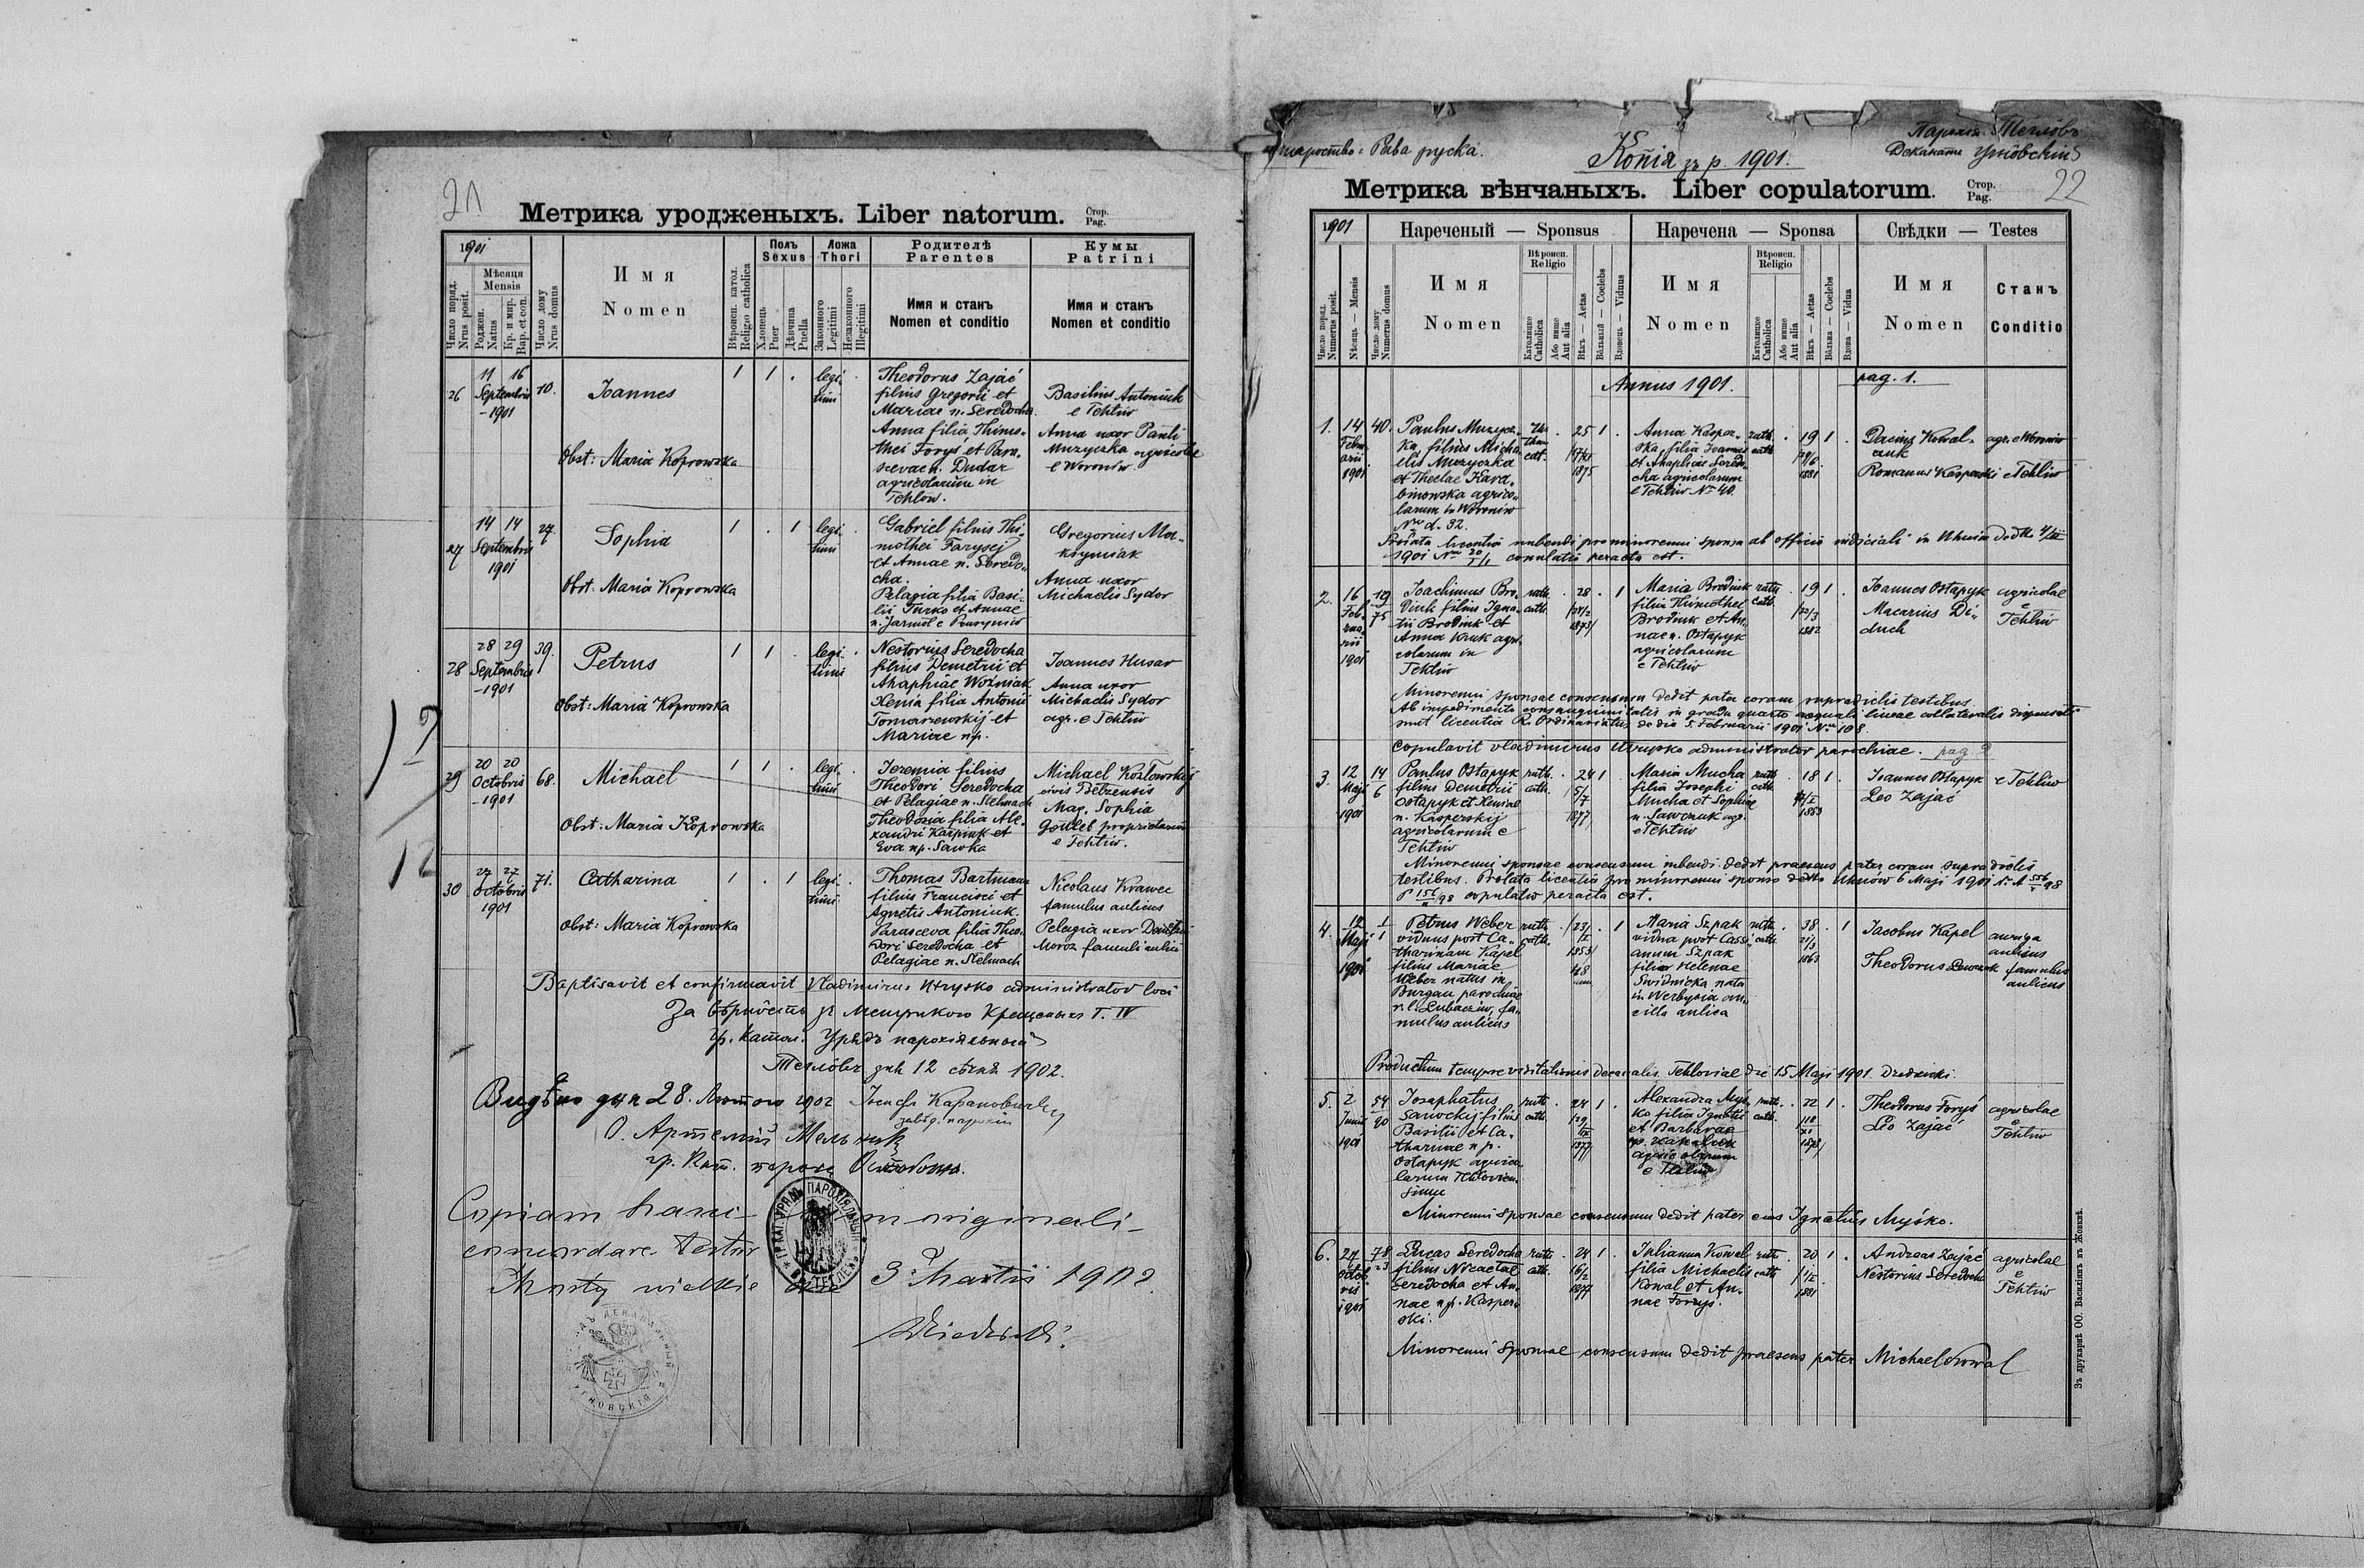 21
Метрика уродженыхъ. Liber natorum.
Стор.
Pag.
1901
Число поряд.
Nrus posit.
Мѣсяця
Mensis
Роджен.
Natus
Кр. и мир.
Bap. et con.
Число дому
Nrus domus
Имя
Nomen
Вѣроисп. катол.
Religio catholica
Полъ
Sexus
Хлопець
Puer
Дѣвчина
Puella
Ложа
Thori
Законного
Legitimi
Незаконного
Illegitimi
Родителѣ
Parentes
Имя и станъ
Nomen et conditio
Кумы
Patrini
Имя и станъ
Nomen et conditio
26
11 16
Septembris
-1901
10.
Joannes
Obst: Maria Koprowska
1 1 .
legi-
timi
Theodorus Zając
filius Gregorii et
Mariae n. Seredocha.
Anna filia Thimo-
thei Foryś et Paras-
cevae n. Dudar
agricolarum in
Tehlow.
Basilius Antoniuk
e Tehliw
Anna uxor Pauli
Muzyczka agricolae
e Woroniw
27
14 14
Septembris
1901
27.
Sophia
Obst: Maria Koprowska
1 . 1
legi-
timi
Gabriel filius Thi-
mothei Farysej
et Annae n. Seredo-
cha.
Pelagia filia Basi-
lii Turko et Annae
Gregorius Ma-
Anna uxor
Michaelis Sydor
28
28 29
Septembris
-1901
39.
Petrus
Obst: Maria Koprowska
1 1 .
legi-
timi
Nestorius Seredocha
filius Demetrii et
Ahaphiae Woźniak
Xenia filia Antonii
Tomaszewskij et
Mariae np.
Joannes Husar
Anna uxor
Michaelis Sydor
agr. e Tehliw
29
20 20
Octobris
-1901
68.
Michael
Obst: Maria Koprowska
1 1 .
legi-
timi
Jeremia filius
Theodori Seredocha
et Pelagiae n. Stelmach
Theodosia filia Ale-
xandri Karpiuk et
Eva np. Sawka
Michael Kozłowskij
civis Betzensis
Mag. Sophia
Gottleb proprietarius
e Tehliw.
30
27 27
Octobris
1901
71.
Catharina
Obst: Maria Koprowska
1 . 1
legi-
timi
Thomas Bartmann
filius Francisci et
Agnetis Antoniuk.
Parasceva filia Theo-
dori Seredocha et
Pelagiae n. Stelmach
Nicolaus Krawec
famulus aulicus
Pelagia uxor
Moroz famuli aulici
Baptisavit et confirmavit Vladimirus Utrysko administrator loci
За вѣрнôсть зъ Метрикою Крещеныхъ Т. IV
Гр. катол. Урядъ парохіяльный
Теглôвъ дня 12 сѣчня 1902.
Видѣно дня 28. Лютого 1902
завѣд. парохіи
О. Артемій Мельник
гр. кат. парох
Copiam hanc cum originali
concordare testor
Mosty wielkie die 3 Martii 1902
22
староство: Рава руска.
Копія зъ р. 1901.
Парохія Теглôвъ
Деканатъ Угнôвскій
Метрика вѣнчаныхъ. Liber copulatorum.
Стор.
Pag.
1901
Нареченый — Sponsus
Наречена — Sponsa
Свѣдки — Testes
Число поряд.
Numerus posit.
Мѣсяць — Mensis
Число дому
Numerus domus
Имя
Nomen
Вѣроисп.
Religio
Католицке
Catholica
Або инше
Aut alia
Вѣкъ — Aetas
Вôльный — Coelebs
Вдовець — Viduus
Имя
Nomen
Вѣроисп.
Religio
Католицке
Catholica
Або инше
Aut alia
Вѣкъ — Aetas
Вôльна — Coelebs
Вдова — Vidua
Имя
Nomen
Станъ
Conditio
Annus 1901.
pag. 1.
1.
14
Febru-
arii
1901
40.
Paulus Muzycz-
ka, filius Micha-
elis Muzyczka
et Theclae Kara-
binowska agrico-
larum in Woroniw
Nro d. 32.
25 1 .
1875
Anna Kasper-
ska, filia Joannis
et Ahaphiae Seredo-
cha agricolarum
e Tehliw Nr 40.
ruth.
cath.
19 1 .
1881
Dacius Kowal-
czuk
Romanus Kasperski
agr. e Woroniw
e Tehliw
Prolata licentia nubendi pro minorenni sponsa ab officio judiciali in Uhniw
1901 copulatio peracta est.
2.
16
Feb-
rua-
rii
1901
19
75
Joachimus Bro-
diuk filius Igna-
tii Brodiuk et
Anna Kruk agri-
colarum in
Tehliw
ruth.
cath.
28 . 1
1873
Maria Brodiuk
filia Thimothei
Brodiuk et An-
nae n. Ostapyk
agricolarum
e Tehliw
ruth.
cath.
19 1 .
1882
Joannes Ostapyk
Macarius Di-
duch
agricolae
e
Tehliw
Minorenni sponsae consensum dedit pater coram supradictis testibus.
Ab impedimento consanguinitatis in gradu quarto aequali lineae collateralis dispensati
sunt licentia R. Ordinariatus de die 5 Februarii 1901 Nro 108.
Copulavit Vladimirus Utrysko administrator parochiae. pag. 2
3.
12
Maji
1901
14
6
Paulus Ostapyk
filius Demetrii
Ostapyk et Xeniae
n. Kasperskij
agricolarum e
Tehliw
ruth.
cath.
24 1
5/7
1877
Maria Mucha
filia Josephi
Mucha et Sophiae
n. Sawczuk agr.
e Tehliw
ruth.
cath.
18 1 .
1883
Joannes Ostapyk
Leo Zając
e Tehliw
Minorenni sponsae consensum nubendi dedit praesens pater coram supradictis
testibus. Prolata licentia pro minorenni sponso ddto Uhnów 6 Maji 1901
copulatio peracta est.
4.
12
Maji
1901
1
1
Petrus Weber
viduus post Ca-
tharinam Kapel
filius Mariae
Weber natus in
Burgau parochiae
r. l. Lubaczów, fa-
mulus aulicus
ruth.
cath.
. 1
1853
48
Maria Szpak
vidua post Cassi-
anum Szpak
filia Helenae
Swidnicka nata
in Werbycia an-
cilla aulica
ruth.
cath.
38 . 1
21/3
1863
Jacobus Kapel
Theodorus
auriga
aulicus
famulus
aulicus
Productum tempore visitationis decanalis Tehloviae die 15 Maji 1901.
5.
2
Junii
1901
54
20
Josaphatus
Sanockij filius
Basilii et Ca-
tharinae np.
Ostapyk agrico-
larum Tehlovien-
sium
ruth.
cath.
24 1 .
1877
Alexandra Myś-
ko filia Ignatii
et Barbarae
agricolarum
e Tehliw
ruth.
cath.
22 1 .
Theodorus Foryś
Leo Zając
agricolae
e
Tehliw
Minorenni sponsae consensum dedit pater eius Ignatius Myśko.
6.
27
Octob-
ris
1901
78
23
Lucas Seredocha
filius Nicaetae
Seredocha et An-
nae np. Kasper-
ski.
ruth.
cath.
24 1 .
16/2
1877
Julianna Kowal
filia Michaelis
Kowal et An-
nae Forys.
ruth.
cath.
20 1 .
1881
Andreas Zając
Nestorius Seredocha
agricolae
e
Tehliw
Minorenni sponsae consensum dedit praesens pater Michael Kowal
Зъ друкарнѣ ОО. Василіянъ въ Жовквѣ.